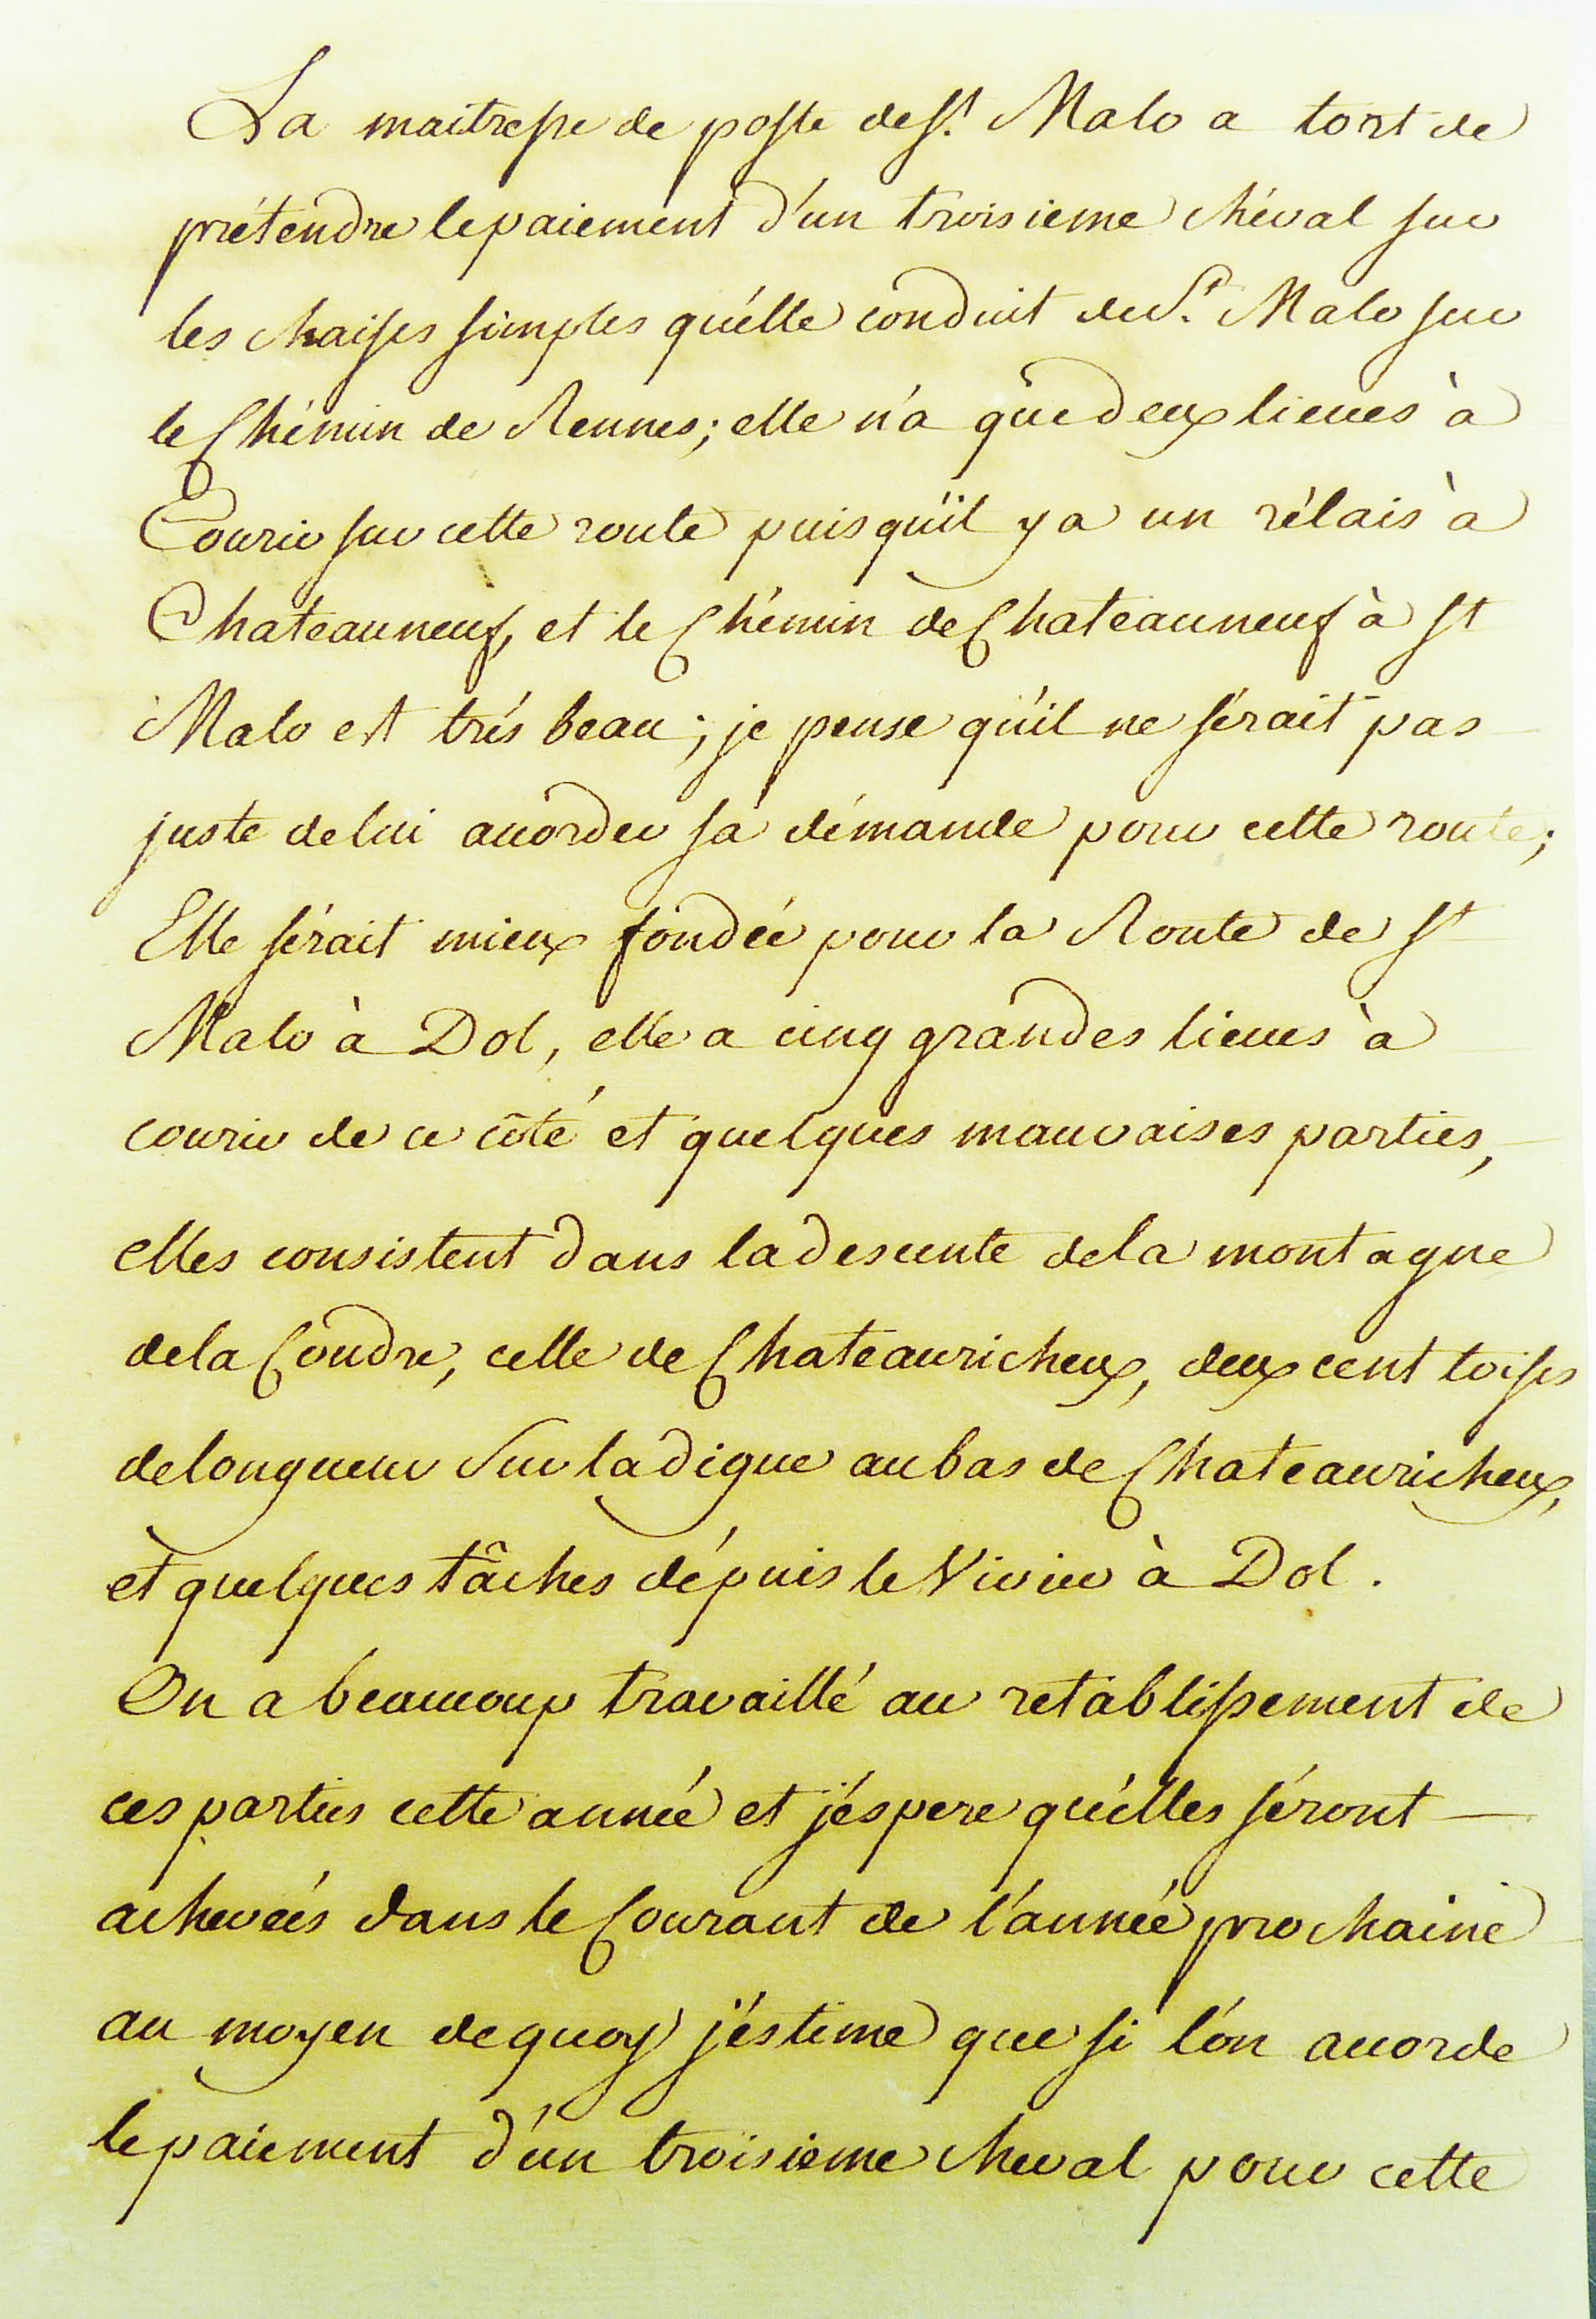 La maitresse de poste de St. Malo a tort de
prétendre le paiement d'un troisieme chéval sur
les chaises simples qu'élle conduit de St. Malo sur
le Chémin de Rennes; elle n'a que deux lieues à
Courir sur cette route puisqu'il y a un rélais à
Chateauneuf, et le Chémin de Chateauneuf à St
Malo est trés beau; je pense qu'il ne sérait pas
juste de lui acorder sa démande pour cette route;
Elle sérait mieux fondée pour la Route de St
Malo à Dol, elle a cinq grandes lieues à
courir de ce côté et quelques mauvaises parties,
elles consistent dans la descente de la montagne
de la Coudre, celle de Chateauricheux, deux cent toises
de longueur Sur la digue au bas de Chateauricheux,
et quelques tâches dépuis le Vivier à Dol.
On a beaucoup travaillé au retablissement de
ces parties cette année et j'éspere qu'élles séront
achevées dans le Courant de l'année prochaine
au moyen de quoy j'éstime que si l'on acorde
le paiement d'un troisieme cheval pour cette